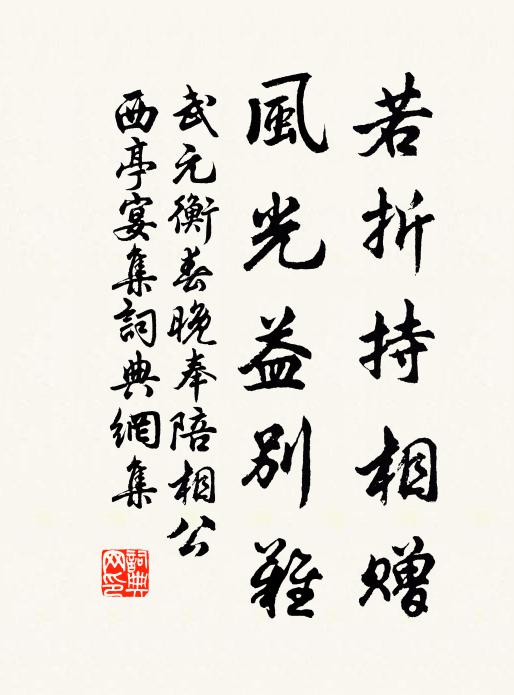 若折持相赠
風光益别難
武元衡春晚奉陪相公
西亭宴集詞典網集
詞典网印